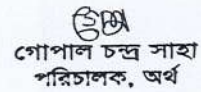 গোপাল চন্দ্র সাহা
পরিচালক, অর্থ